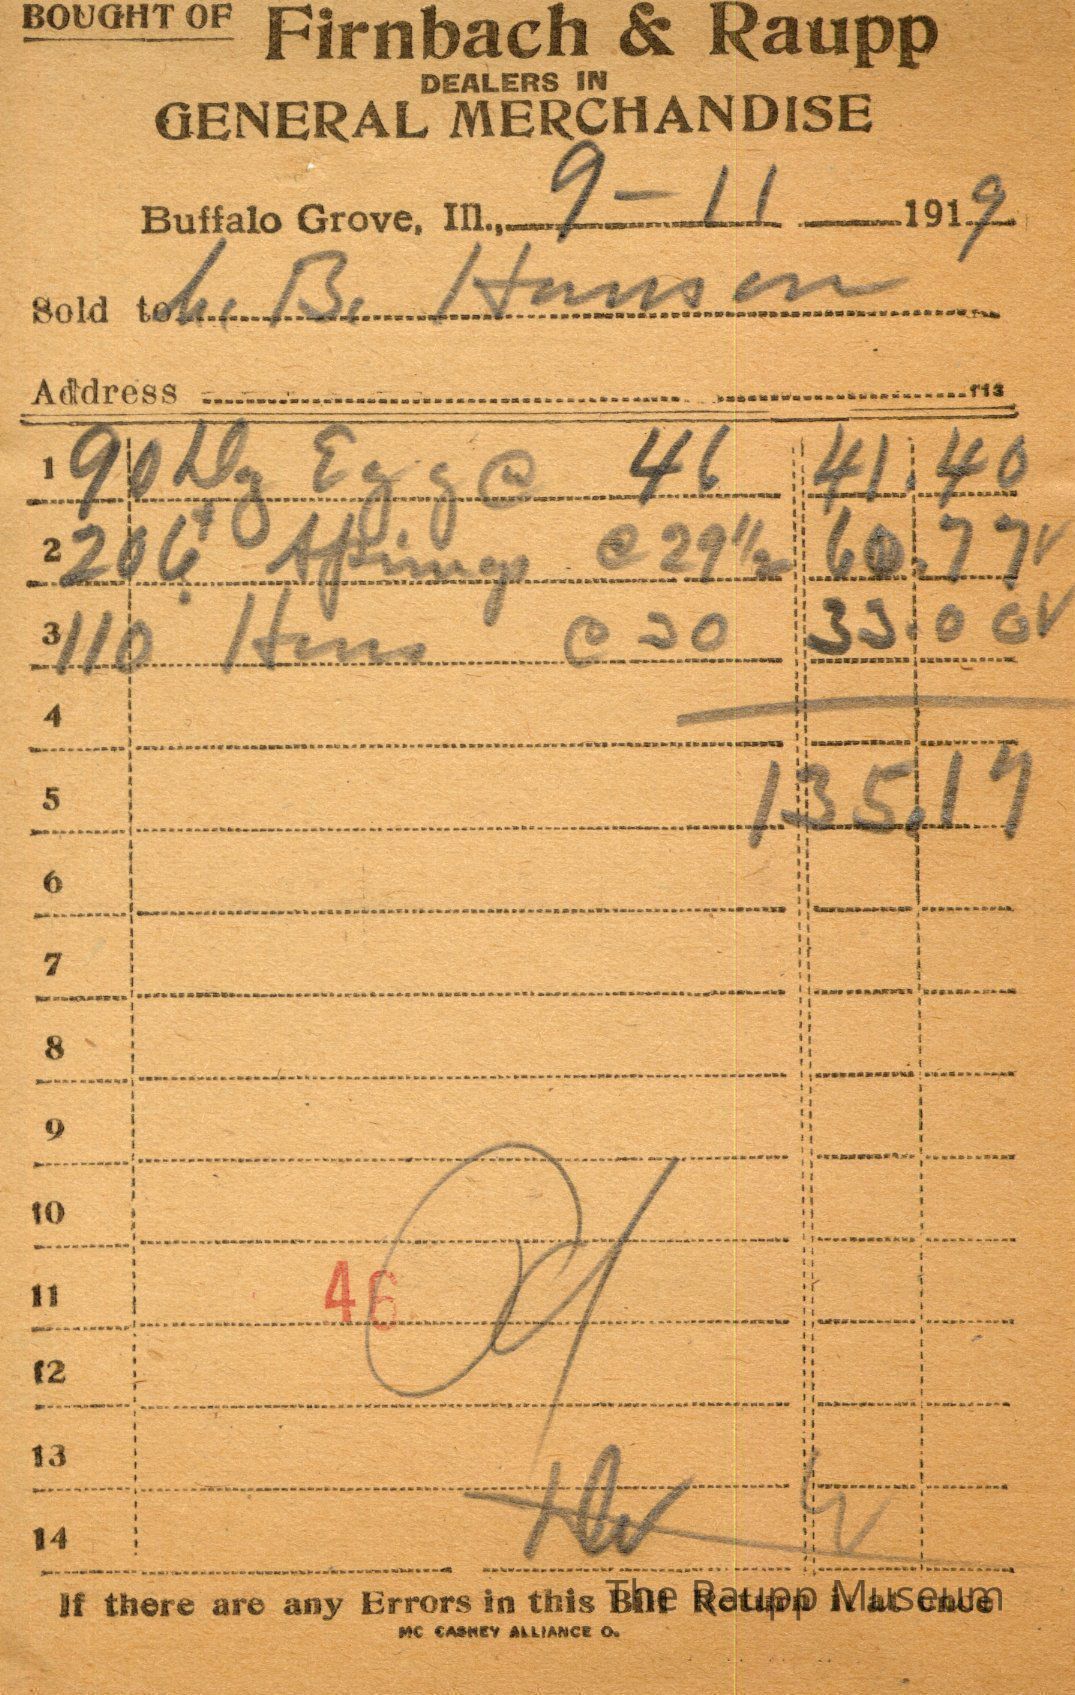 BOUGHT OF Firnbach & Raupp
DEALERS IN
GENERAL MERCHANDISE
Buffalo Grove, Ill., 9-11 1919
Sold to L. B. Hanson
Address 113
1 90 Dz Egg @ 46 41.40
2 206# Springs @ 29 1/2 60.77 √
3 110 Hens @ 30 33.00 √
4
5 135.17
6
7
8
9
10
11 46
12
13
14
If there are any Errors in this Bill Return it at once
The Raupp Museum
MC CASKEY ALLIANCE O.